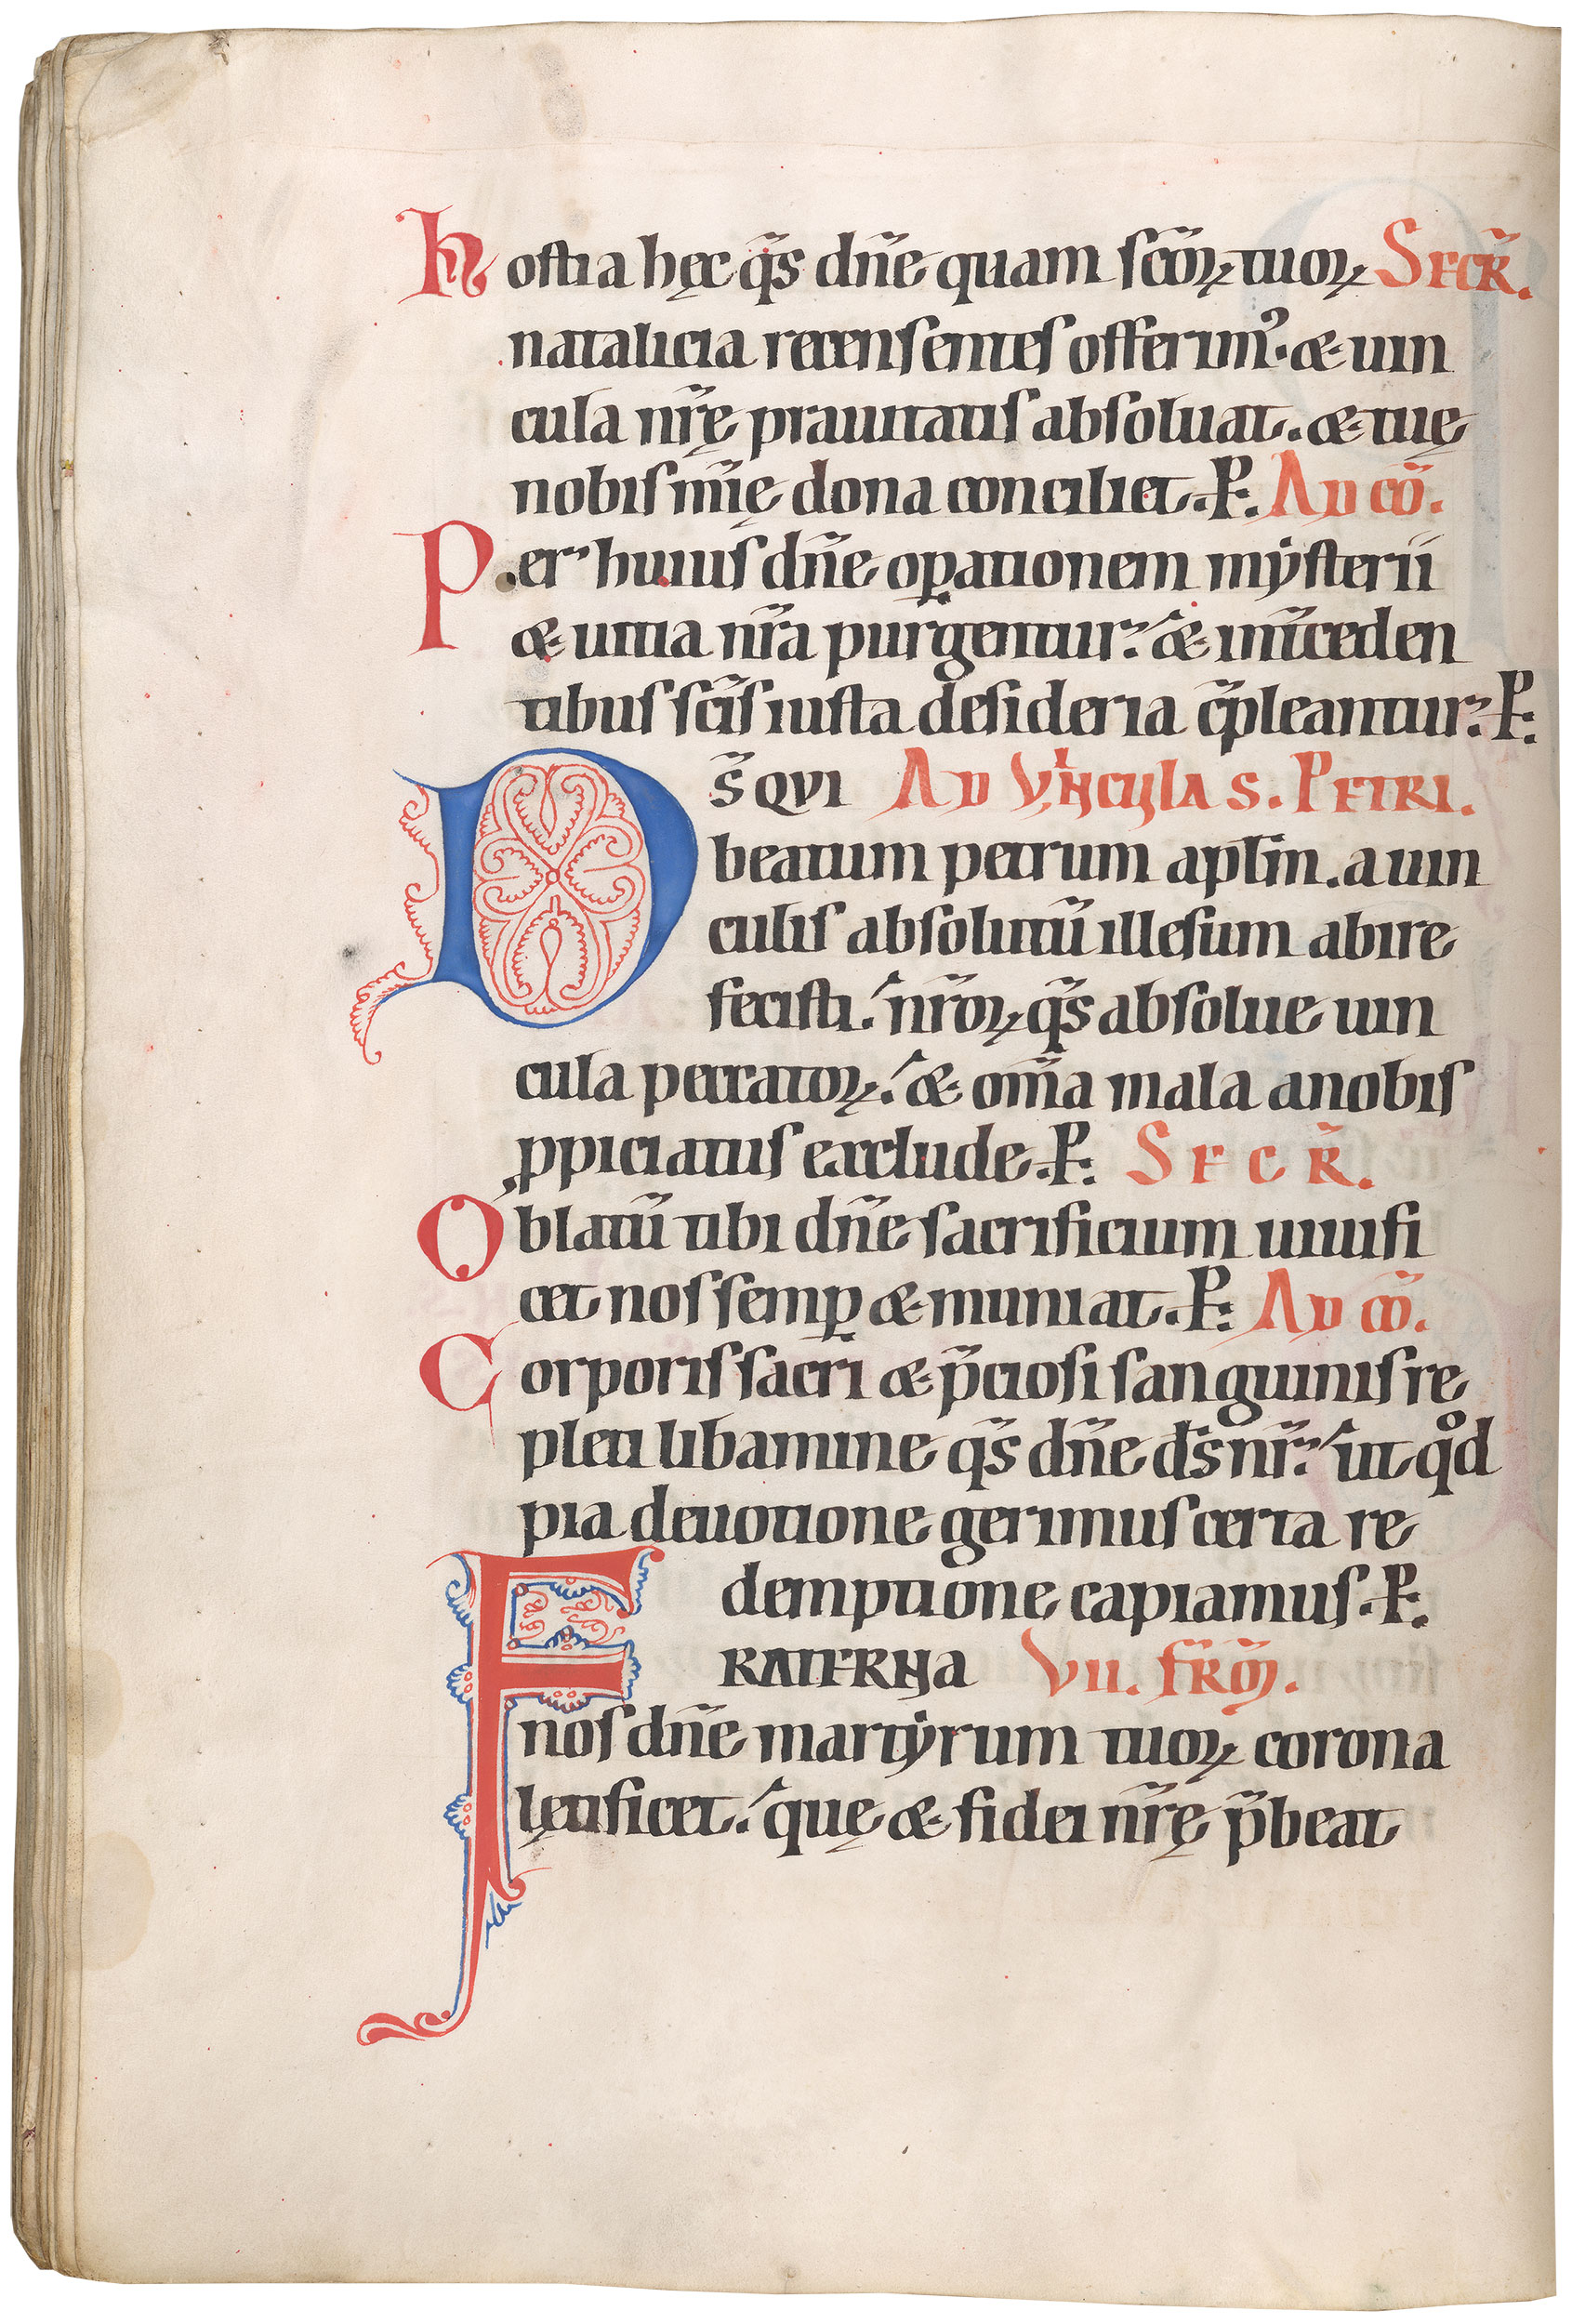 Hostia hęc q̄s dn̄e quam sc̄oꝝ tuoꝝ SECR̄.
natalicia recensentes offerimꝰ. & uin
cula nr̄ę prauitatis absoluat. & tuę
nobis mīę dona conciliet. P. AD CŌ.
Per huius dn̄e oꝑationem mẏsterii
& uitia nr̄a purgentur: & int̄ceden
tibus sc̄is iusta desideria cp̄leantur: P.
Ds̄ QVI AD VINCULA S. PETRI.
beatum petrum aptl̄m. a uin
culis absolutū illesum abire
fecisti: nr̄oꝝ q̄s absolue uin
cula peccatoꝝ: & om̄a mala a nobis
ꝓpiciatus exclude. P. SECR̄.
Oblatū tibi dn̄e sacrificium uiuifi
cet nos semꝑ & muniat. P. AD CŌ.
Corporis sacri & p̄ciosi sanguinis re
pleti libamine q̄s dn̄e ds̄ nr̄: ut qͦd
pia deuotione gerimus certa re
demptione capiamus. P.
FRATERNA VII. FR̄M̄.
nos dn̄e martẏrum tuoꝝ corona
lętificet: quę & fidei nr̄ę p̄beat